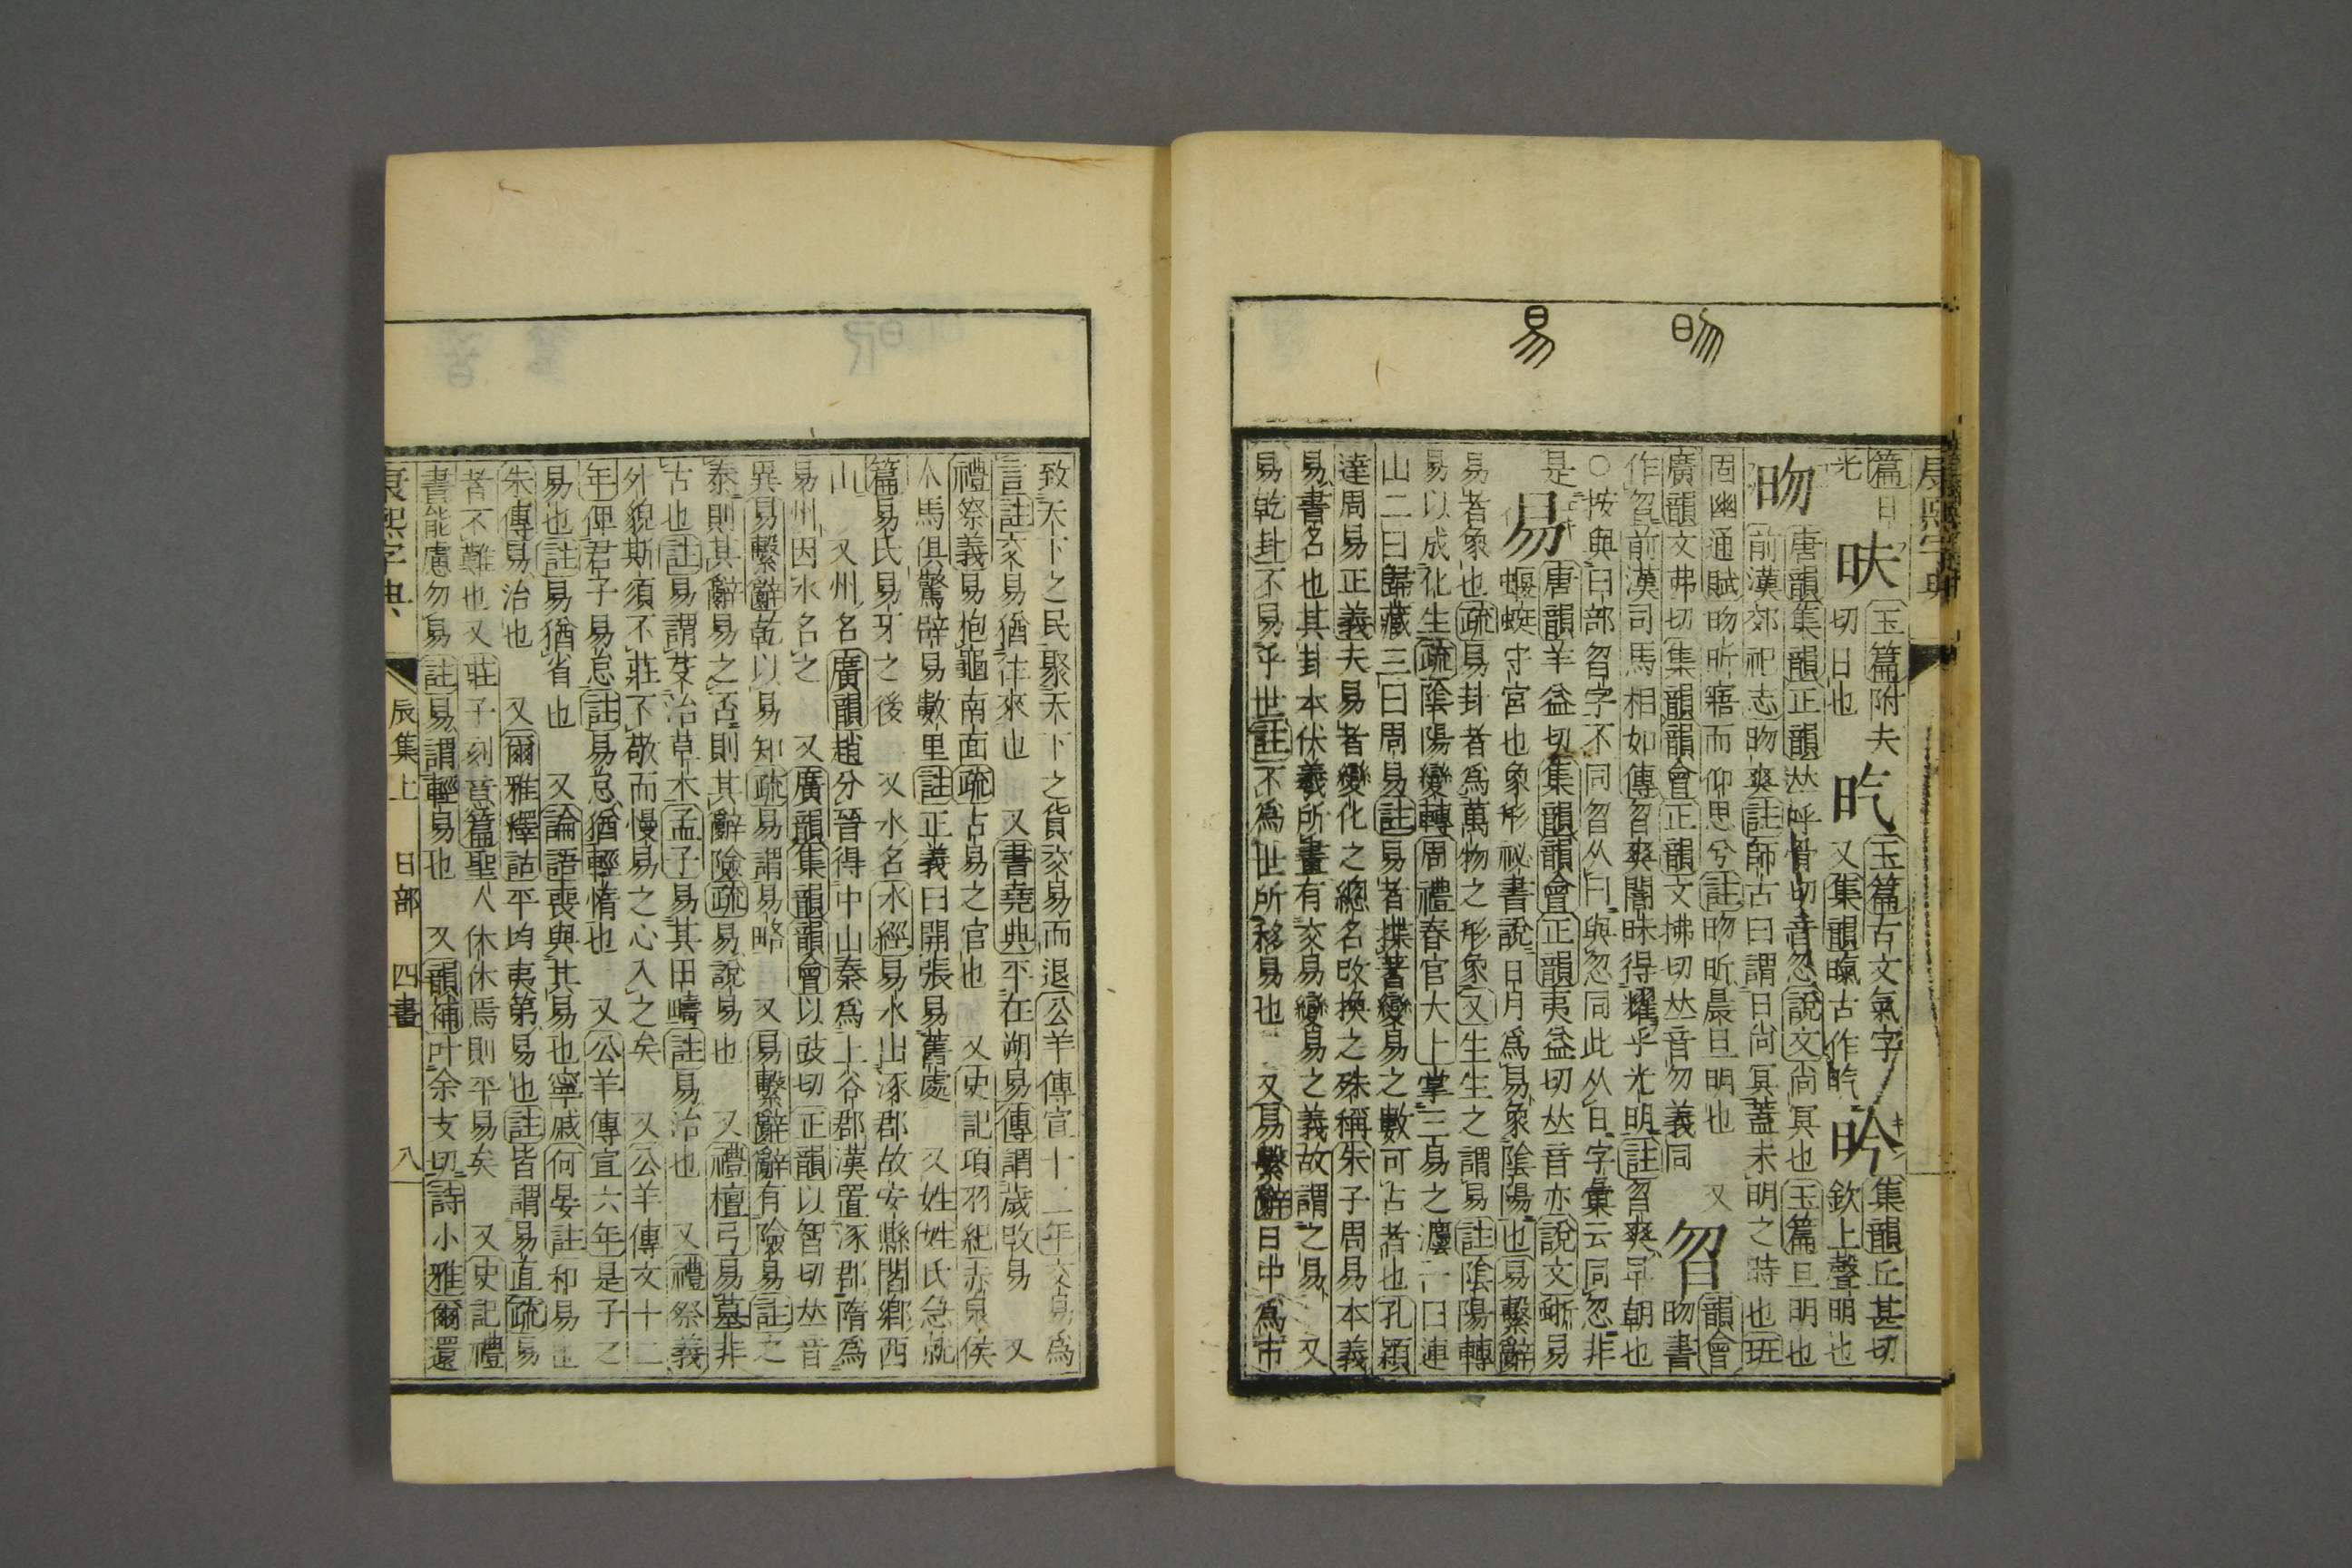 昒
易
康熙字典
篇日 玉篇附夫 玉篇古文氣字 集韻丘甚切
光 切日也 又集韻暣古作 昑 欽上聲明也
唐韻集韻正韻𠀤呼骨切音忽說文尚冥也玉篇旦明也
昒 前漢郊祀志昒爽註師古曰謂日尚冥蓋未明之時也班
固幽通賦昒昕寤而仰思兮註昒昕晨旦明也 又 韻會
廣韻文弗切集韻韻會正韻文拂切𠀤音勿義同 曶 昒書
作曶前漢司馬相如傳曶爽闇昧得耀乎光明註曶爽早朝也
○按與曰部曶字不同曶从曰與忽同此从日字彙云同忽非
是 易 唐韻羊益切集韻韻會正韻夷益切𠀤音亦說文蜥易
蝘蜓守宮也象形祕書說日月爲易象陰陽也易繫辭
易者象也疏易卦者爲萬物之形象又生生之謂易註陰陽轉
易以成化生疏陰陽變轉周禮春官大上掌三易之灋一曰連
山二曰歸藏三曰周易註易者揲蓍變易之數可占者也孔穎
達周易正義夫易者變化之總名改換之殊稱朱子周易本義
易書名也其卦本伏羲所畫有交易變易之義故謂之易 又
易乾卦不易乎世註不爲世所移易也 又易繫辭日中爲市
致天下之民聚天下之貨交易而退公羊傳宣十二年交易爲
言註交易猶往來也 又書堯典平在朔易傳謂歲改易 又
禮祭義易抱龜南面疏占易之官也 又史記項羽紀赤泉侯
人馬俱驚辟易數里註正義曰開張易舊處 又姓姓氏急就
篇易氏易牙之後 又水名水經易水出涿郡故安縣閻鄉西
山 又州名廣韻趙分晉得中山秦爲上谷郡漢置涿郡隋爲
易州因水名之 又廣韻集韻韻會以豉切正韻以智切𠀤音
異易繫辭乾以易知疏易謂易略 又易繫辭辭有險易註之
泰則其辭易之否則其辭險疏易說易也 又禮檀弓易墓非
古也註易謂芟治草木孟子易其田疇註易治也 又禮祭義
外貌斯須不莊不敬而慢易之心入之矣 又公羊傳文十二
年俾君子易怠註易怠猶輕惰也 又公羊傳宣六年是子之
易也註易猶省也 又論語喪與其易也寧戚何晏註和易也
朱傳易治也 又爾雅釋詁平均夷弟易也註皆謂易直疏易
者不難也又莊子刻意篇聖人休休焉則平易矣 又史記禮
書能慮勿易註易謂輕易也 又韻補叶余支切詩小雅爾還
康熙字典 辰集上 日部 四畫 八